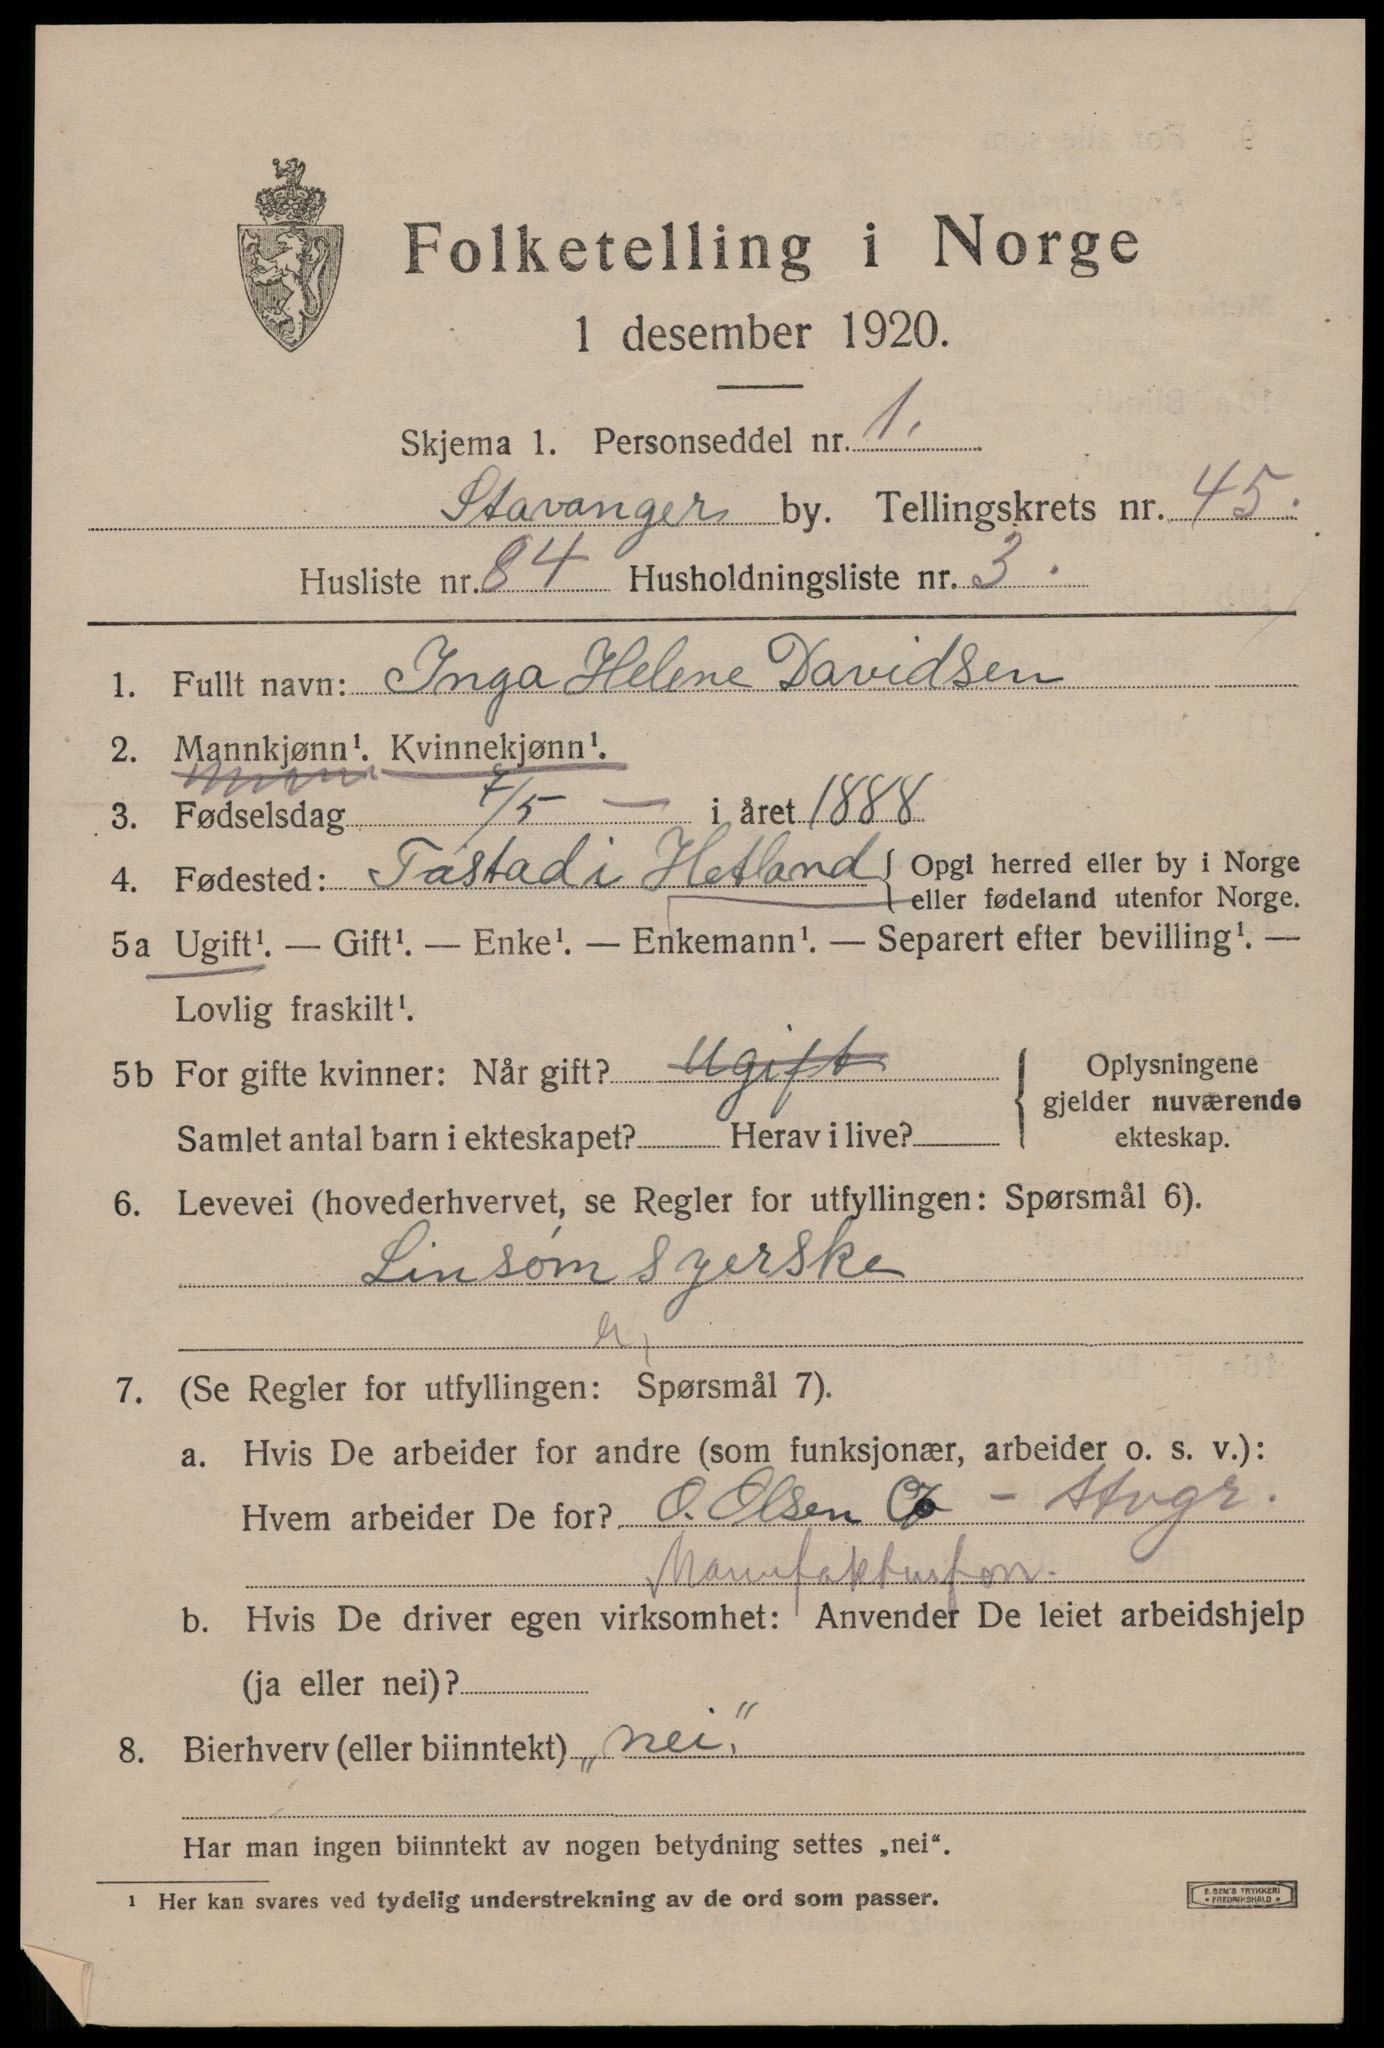 Folketelling i Norge
1 desember 1920.
Skjema 1. Personseddel nr. 1.
Stavanger by. Tellingskrets nr. 45.
Husliste nr. 84 Husholdningsliste nr. 3.
1. Fullt navn: Inga Helene Davidsen
2. Mannkjønn¹. Kvinnekjønn¹.
3. Fødselsdag 7/5 — i året 1888
4. Fødested: Tastad i Hetland { Opgi herred eller by i Norge
eller fødeland utenfor Norge.
5a Ugift¹. — Gift¹. — Enke¹. — Enkemann¹. — Separert efter bevilling¹. —
Lovlig fraskilt¹.
5b For gifte kvinner: Når gift? Ugift
Samlet antal barn i ekteskapet? Herav i live?
Oplysningene
gjelder nuværende
ekteskap.
6. Levevei (hovederhvervet, se Regler for utfyllingen: Spørsmål 6).
Linsøm syerske
7. (Se Regler for utfyllingen: Spørsmål 7).
a. Hvis De arbeider for andre (som funksjonær, arbeider o. s. v.):
Hvem arbeider De for? O. Olsen Co - Stvgr.
Manufakturforr.
b. Hvis De driver egen virksomhet: Anvender De leiet arbeidshjelp
(ja eller nei)?
8. Bierhverv (eller biinntekt) „nei"
Har man ingen biinntekt av nogen betydning settes „nei“.
¹ Her kan svares ved tydelig understrekning av de ord som passer.
E. SEM'S TRYKKERI
• FREDRIKSHALD •